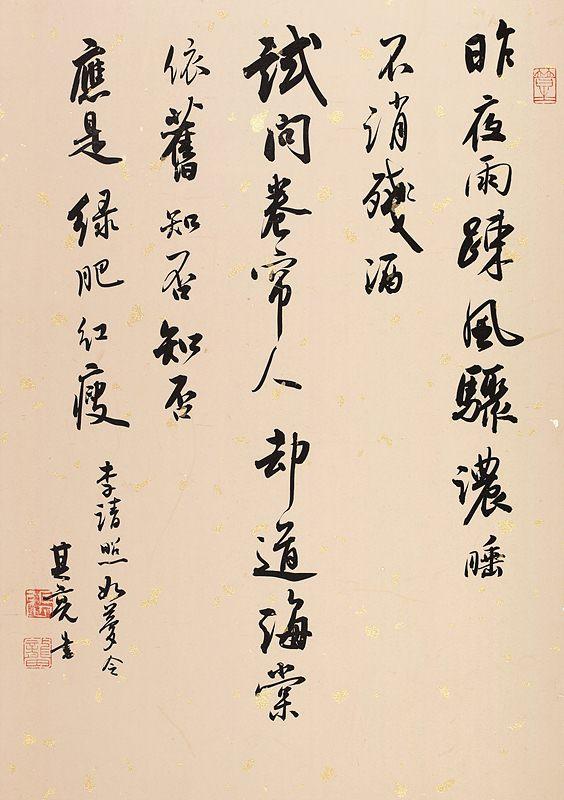 昨夜雨踈風驟濃睡
不消殘酒
試問卷帘人却道海棠
依舊知否知否
應是緑肥紅瘦
李清照如夢令
其亮書